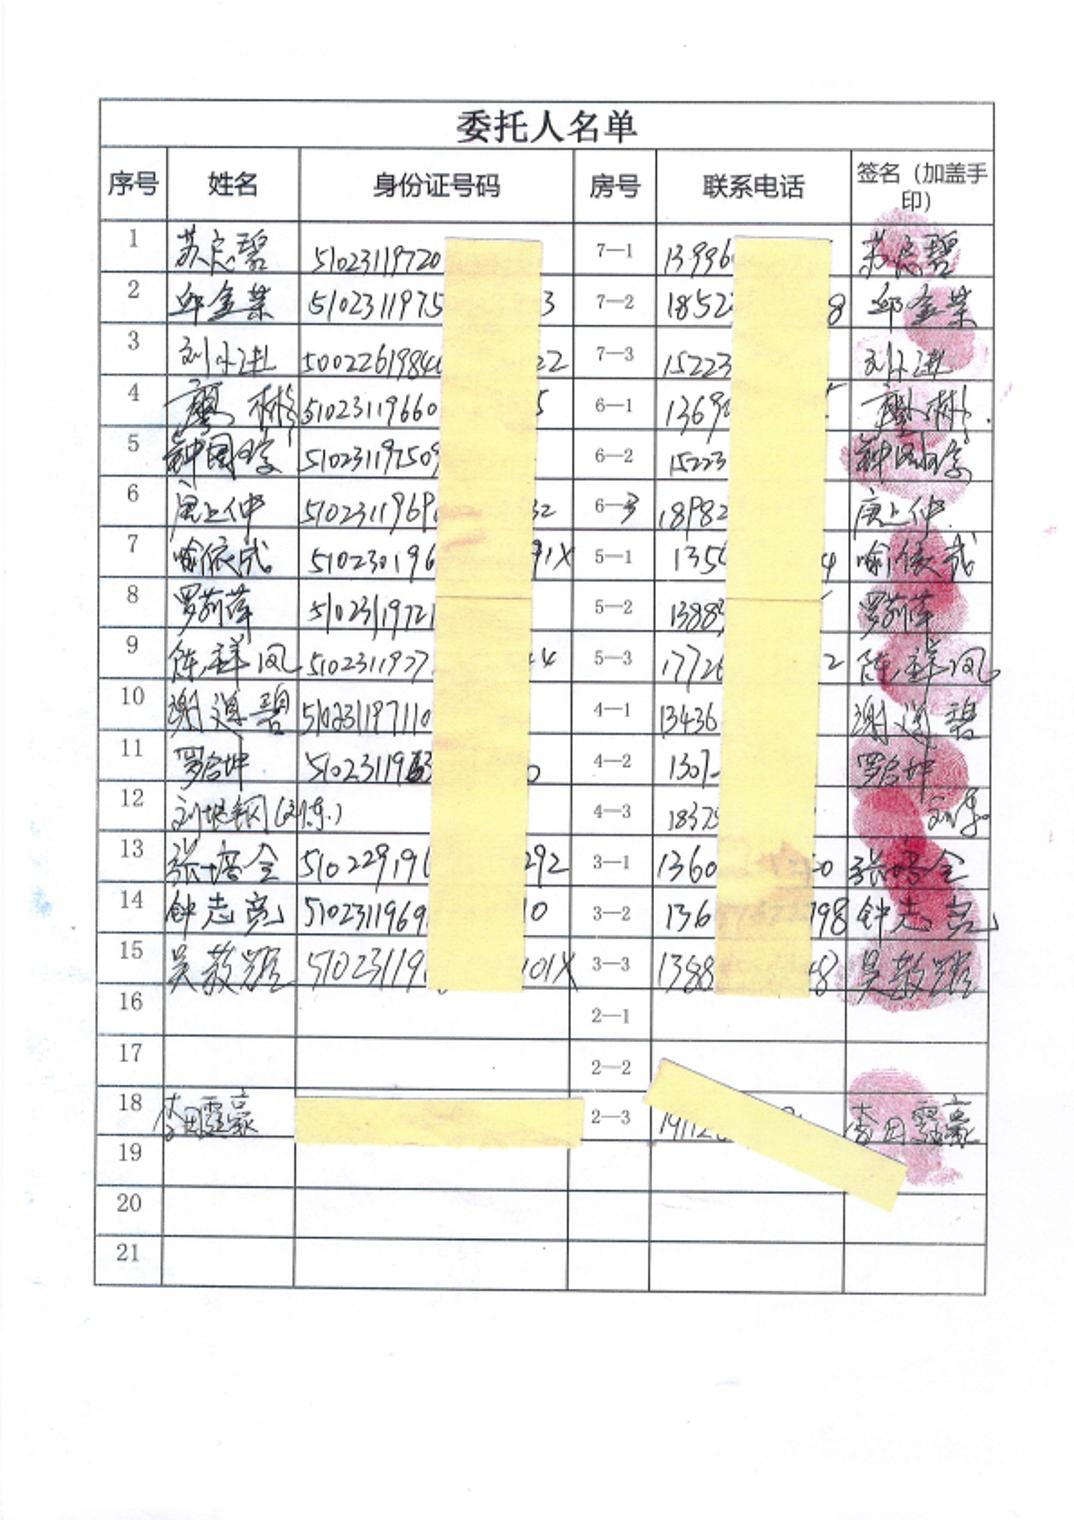 委托人名单
序号 姓名 身份证号码 房号 联系电话 签名（加盖手印）
1 苏启碧 51023119720 7—1 13996 苏启碧
2 邱金荣 5102311975 3 7—2 1852 8 邱金荣
3 刘小进 500226198 22 7—3 15223 刘小进
4 廖彬 51023119660 5 6—1 1369 廖彬
5 钟国学 510231197509 6—2 15223 钟国学
6 唐上仲 510231196 32 6—3 18982 唐上仲
7 喻依成 510230196 91X 5—1 135 4 喻依成
8 罗莉萍 5102311972 5—2 1388 罗莉萍
9 陈祥凤 5102311977 4 5—3 1772 2 陈祥凤
10 谢道碧 510231197110 4—1 13436 谢道碧
11 罗合坤 510231196 0 4—2 1307 罗合坤
12 4—3 1837
13 张培全 51022919 292 3—1 1360 0 张培全
14 钟志亮 510231196 10 3—2 136 798 钟志亮
15 吴 51023119 101X 3—3 1388 8 吴
16 2—1
17 2—2
18 李 豪 2—3 李 豪
19
20
21